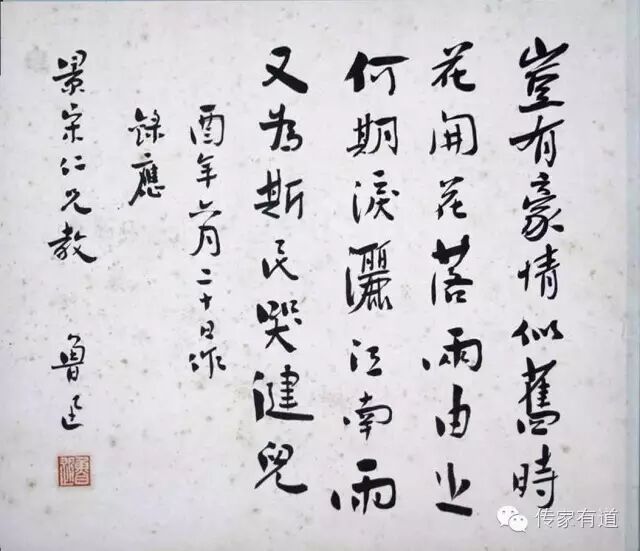 豈有豪情似舊時
花開花落兩由之
何期淚灑江南雨
又為斯民哭健兒
酉年六月二十日作
錄應
景宋仁兄教
魯迅
魯迅
传家有道